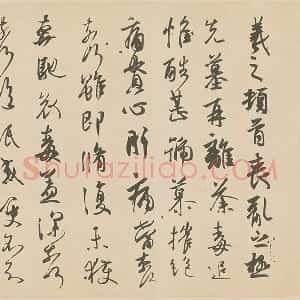 羲之頓首喪亂之極
先墓再離荼毒追
惟酷甚號慕摧絕
痛貫心肝痛當奈何
奈何雖即脩復未獲
奔馳哀毒益深奈何
奈何臨紙感哽不知何
Shufaziliao.com